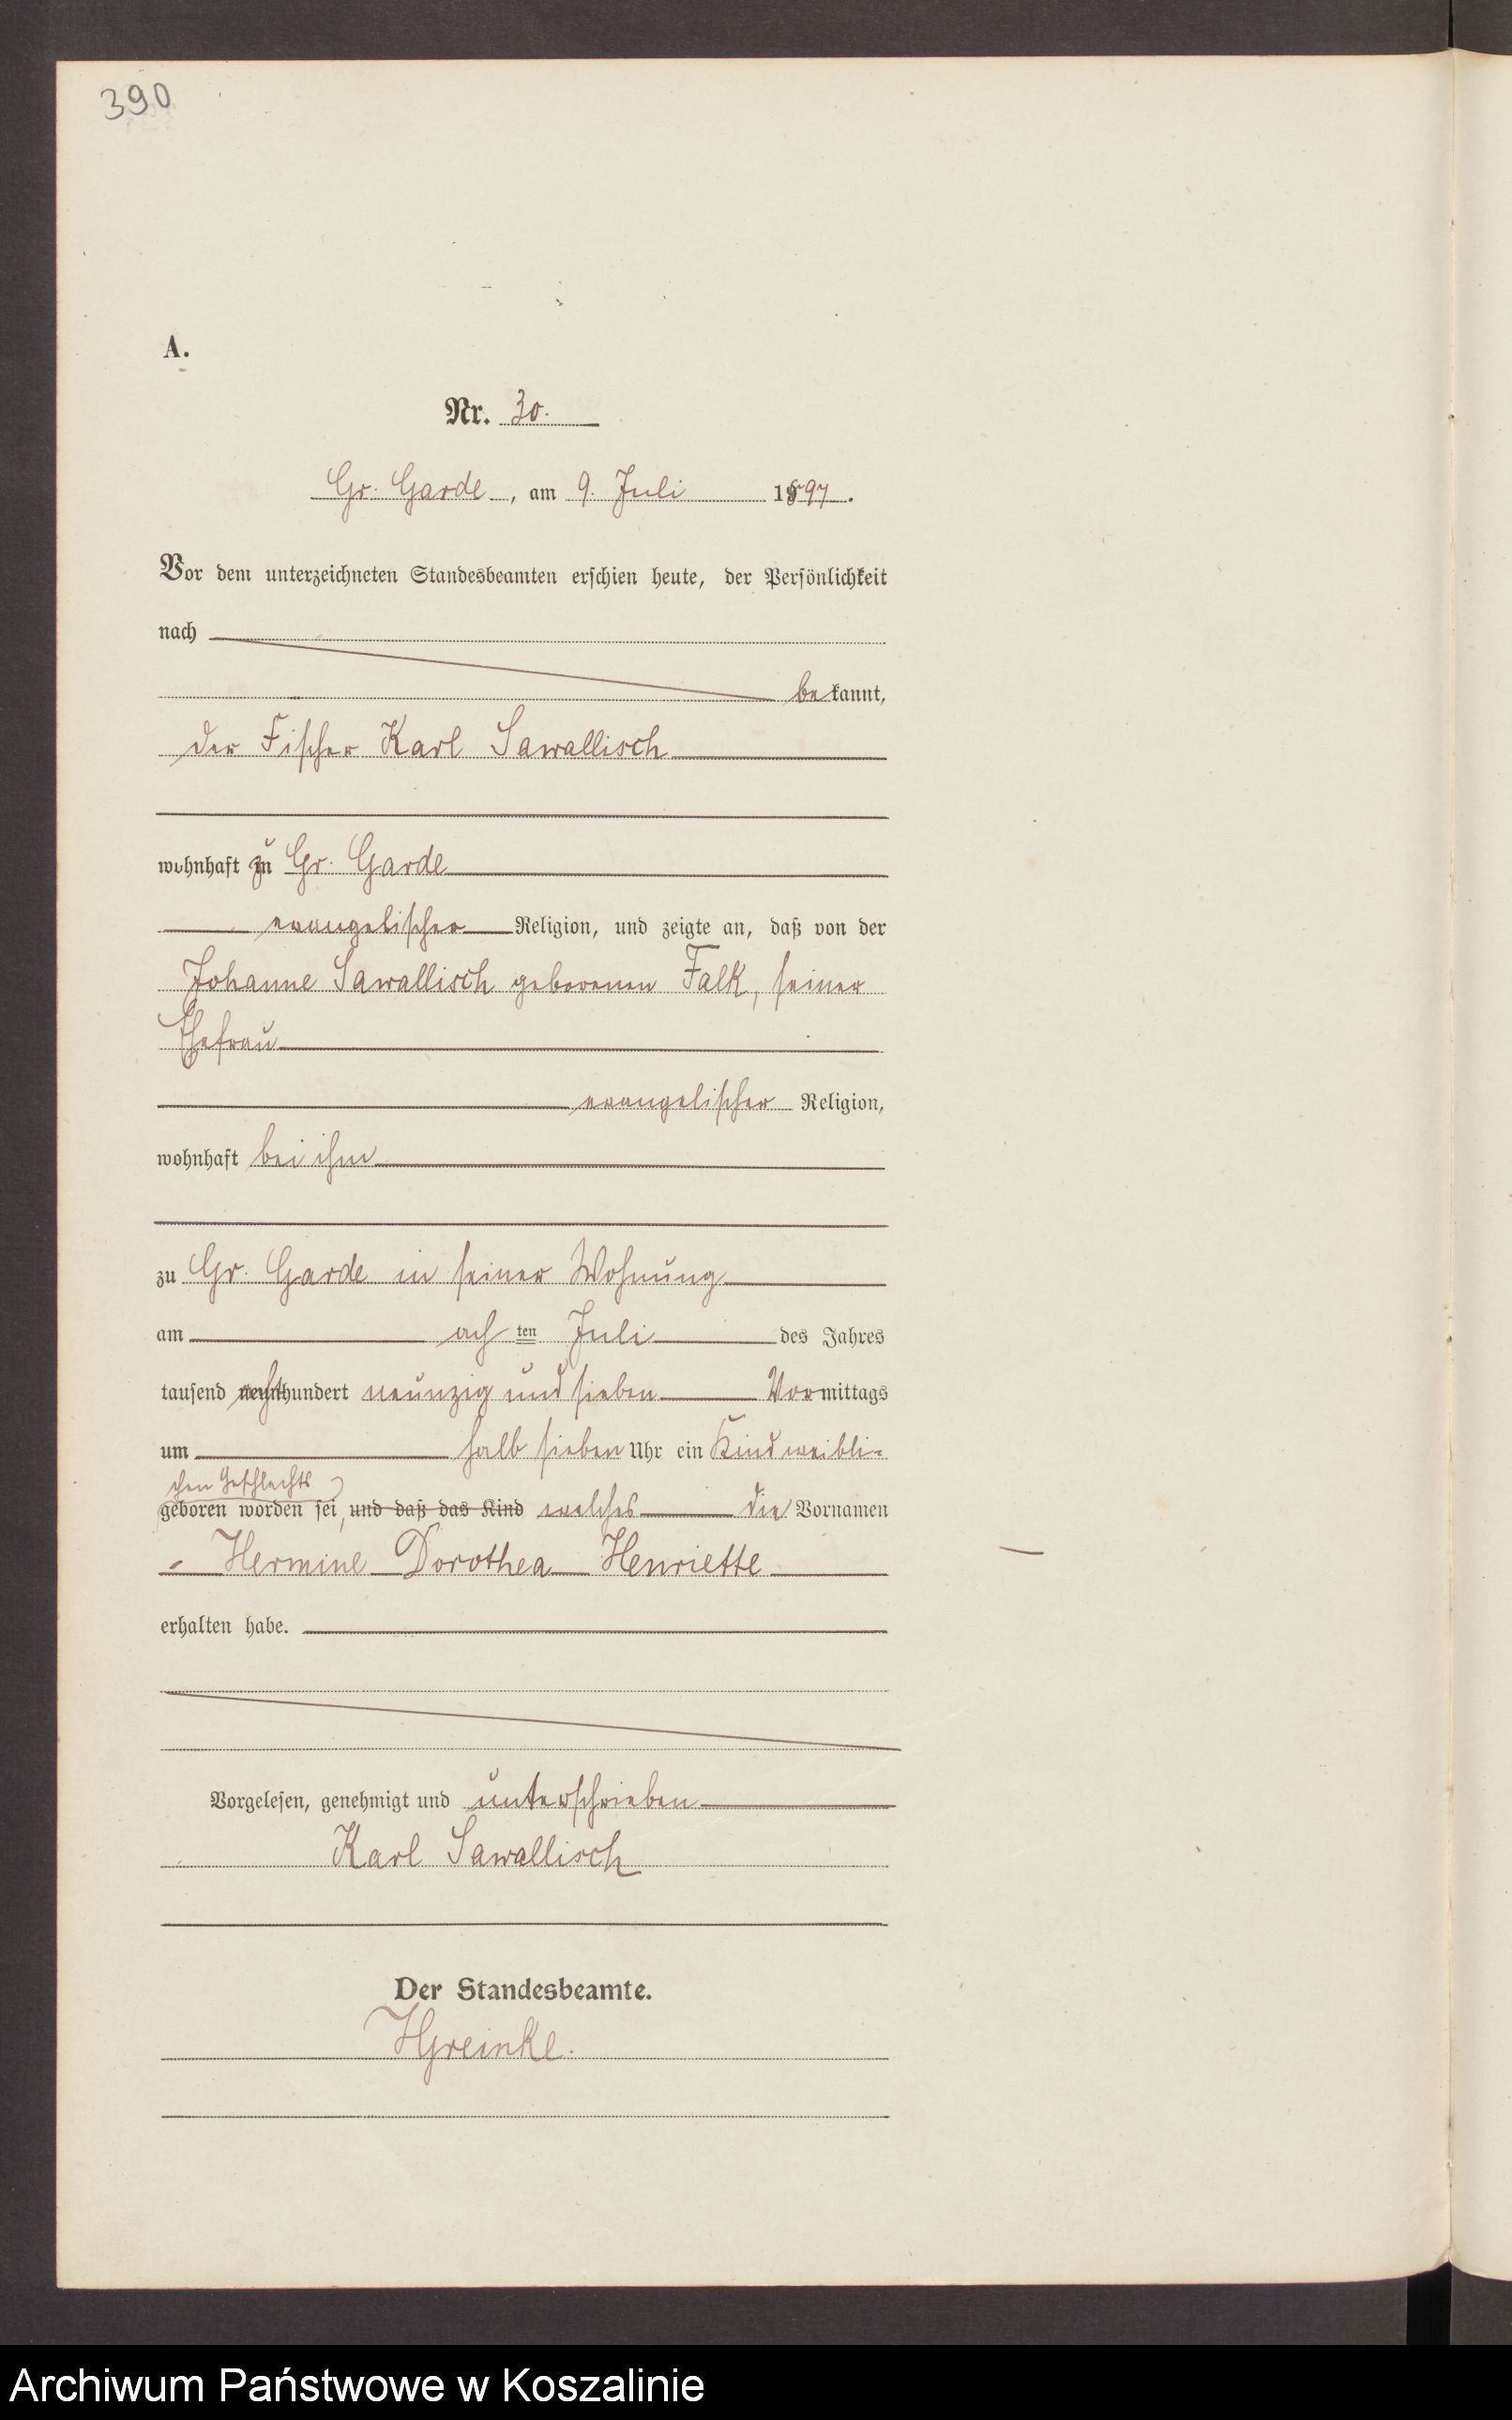 390
A.
Nr. 30.
Gr. Garde, am 9. Juli 1897.
Vor dem unterzeichneten Standesbeamten erschien heute, der Persönlichkeit
nach
bekannt,
der Fischer Karl Sawallisch
wohnhaft zu Gr. Garde
evangelischer Religion, und zeigte an, daß von der
Johanne Sawallisch geborenen Falk, seiner
Ehefrau
evangelischer Religion,
wohnhaft bei ihm
zu Gr. Garde in seiner Wohnung
am ach ten Juli des Jahres
tausend achthundert neunzig und sieben Vormittags
um halb sieben Uhr ein Kind weibli-
chen Geschlechts
geboren worden sei, und daß das Kind welches die Vornamen
Hermine Dorothea Henriette
erhalten habe.
Vorgelesen, genehmigt und unterschrieben
Karl Sawallisch
Der Standesbeamte.
HGreinke.
Archiwum Państwowe w Koszalinie